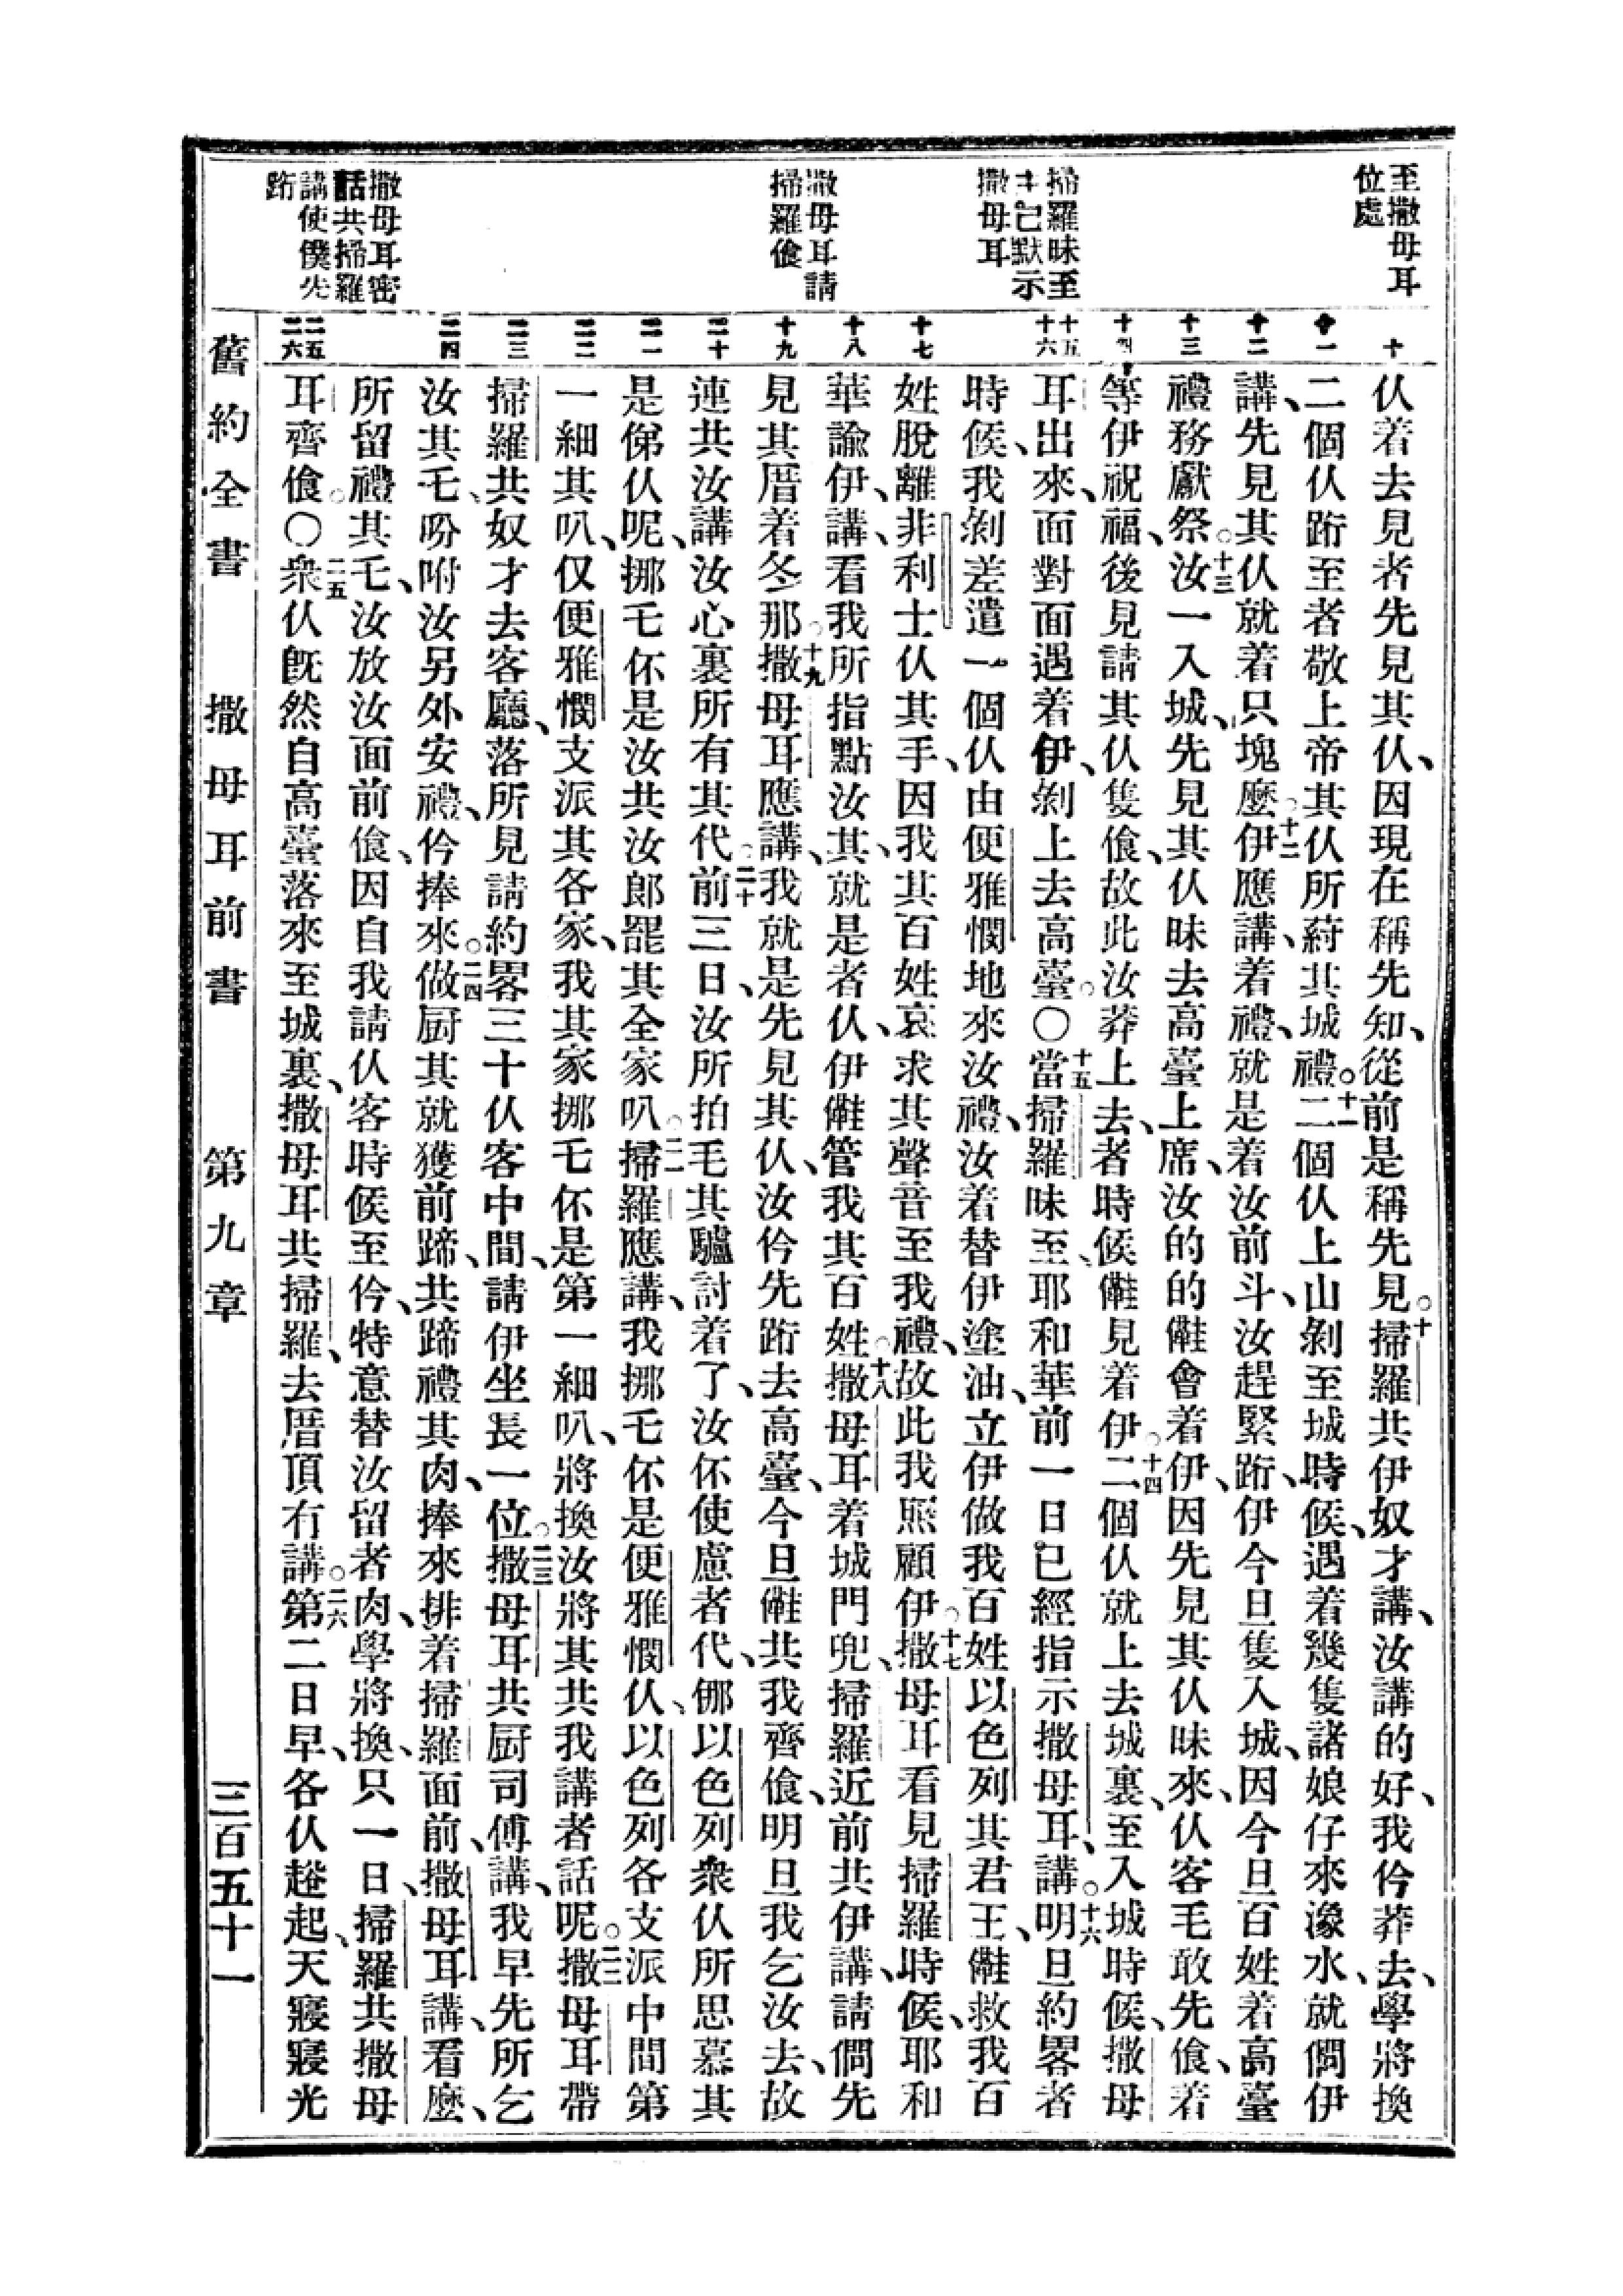 至撒母耳
位處
掃羅昧至
已默示
撒母耳
撒母耳請
掃羅飡
撒母耳密
話共掃羅
講使僕先
跴
十
十一
十二
十三
十四
十五
十六
十七
十八
十九
二十
二一
二二
二三
二四
二五
二六
仈着去見者先見其仈、因現在稱先知、從前是稱先見。十掃羅共伊奴才講、汝講的好、我仱莽去、學將換
二個仈跴至者敬上帝其仈所葑其城禮。十一二個仈上山剝至城時候、遇着幾隻諸娘仔來濠水、就僩伊
講、先見其仈就着只塊麽。十二伊應講、着禮、就是着汝前斗、汝趕緊跴、伊今旦隻入城、因今旦百姓着高臺
禮務獻祭。十三汝一入城、先見其仈昧去高臺上席、汝的的𣍐會着伊、因先見其仈昧來、仈客毛敢先飡、着
等伊祝福、後見請其仈隻飡、故此汝莽上去、者時候𣍐見着伊。十四二個仈就上去城裏、至入城時候、撒母
耳出來、面對面遇着伊、剝上去高臺。〇十五當掃羅昧至、耶和華前一日已經指示撒母耳、講。十六明旦約畧者
時候、我剝差遣一個仈由便雅憫地來汝禮、汝着替伊塗油、立伊做我百姓以色列其君王、𣍐救我百
姓脫離非利士仈其手、因我其百姓哀求其聲音至我禮、故此我煕顧伊。十七撒母耳看見掃羅時候、耶和
華諭伊、講、看我所指點汝其、就是者仈、伊𣍐管我其百姓。十八撒母耳着城門兜、掃羅近前共伊講、請僩先
見其厝着冬那。十九撒母耳應講、我就是先見其仈、汝仱先跴去高臺、今旦𣍐共我齊飡、明旦我乞汝去、故
連共汝講汝心裏所有其代。二十前三日、汝所拍毛其驢討着了、汝伓使慮者代、㑚以色列衆仈所思慕其
是俤仈呢、挪乇伓是汝共汝郎罷其全家叭。二一掃羅應講、我挪乇伓是便雅憫仈、以色列各支派中間第
一細其叭、仅便雅憫支派其各家、我其家挪乇伓是第一細叭、將換汝將其共我講者話呢。二二撒母耳帶
掃羅共奴才去客廳、落所見請約畧三十仈客中間、請伊坐長一位。二三撒母耳共厨司傅講、我早先所乞
汝其乇、吩咐汝另外安禮、仱捧來。二四做厨其就獲前蹄、共蹄禮其肉、捧來排着掃羅面前、撒母耳講、看麽、
所留禮其乇、汝放汝面前飡、因自我請仈客時候至仱、特意替汝留者肉、學將換、只一日、掃羅共撒母
耳齊飡。〇二五衆仈旣然自高臺落來至城裏、撒母耳共掃羅、去厝頂有講。二六第二日早、各仈趖起、天寢寢光
舊約全書　撒母耳前書　第九章　三百五十一